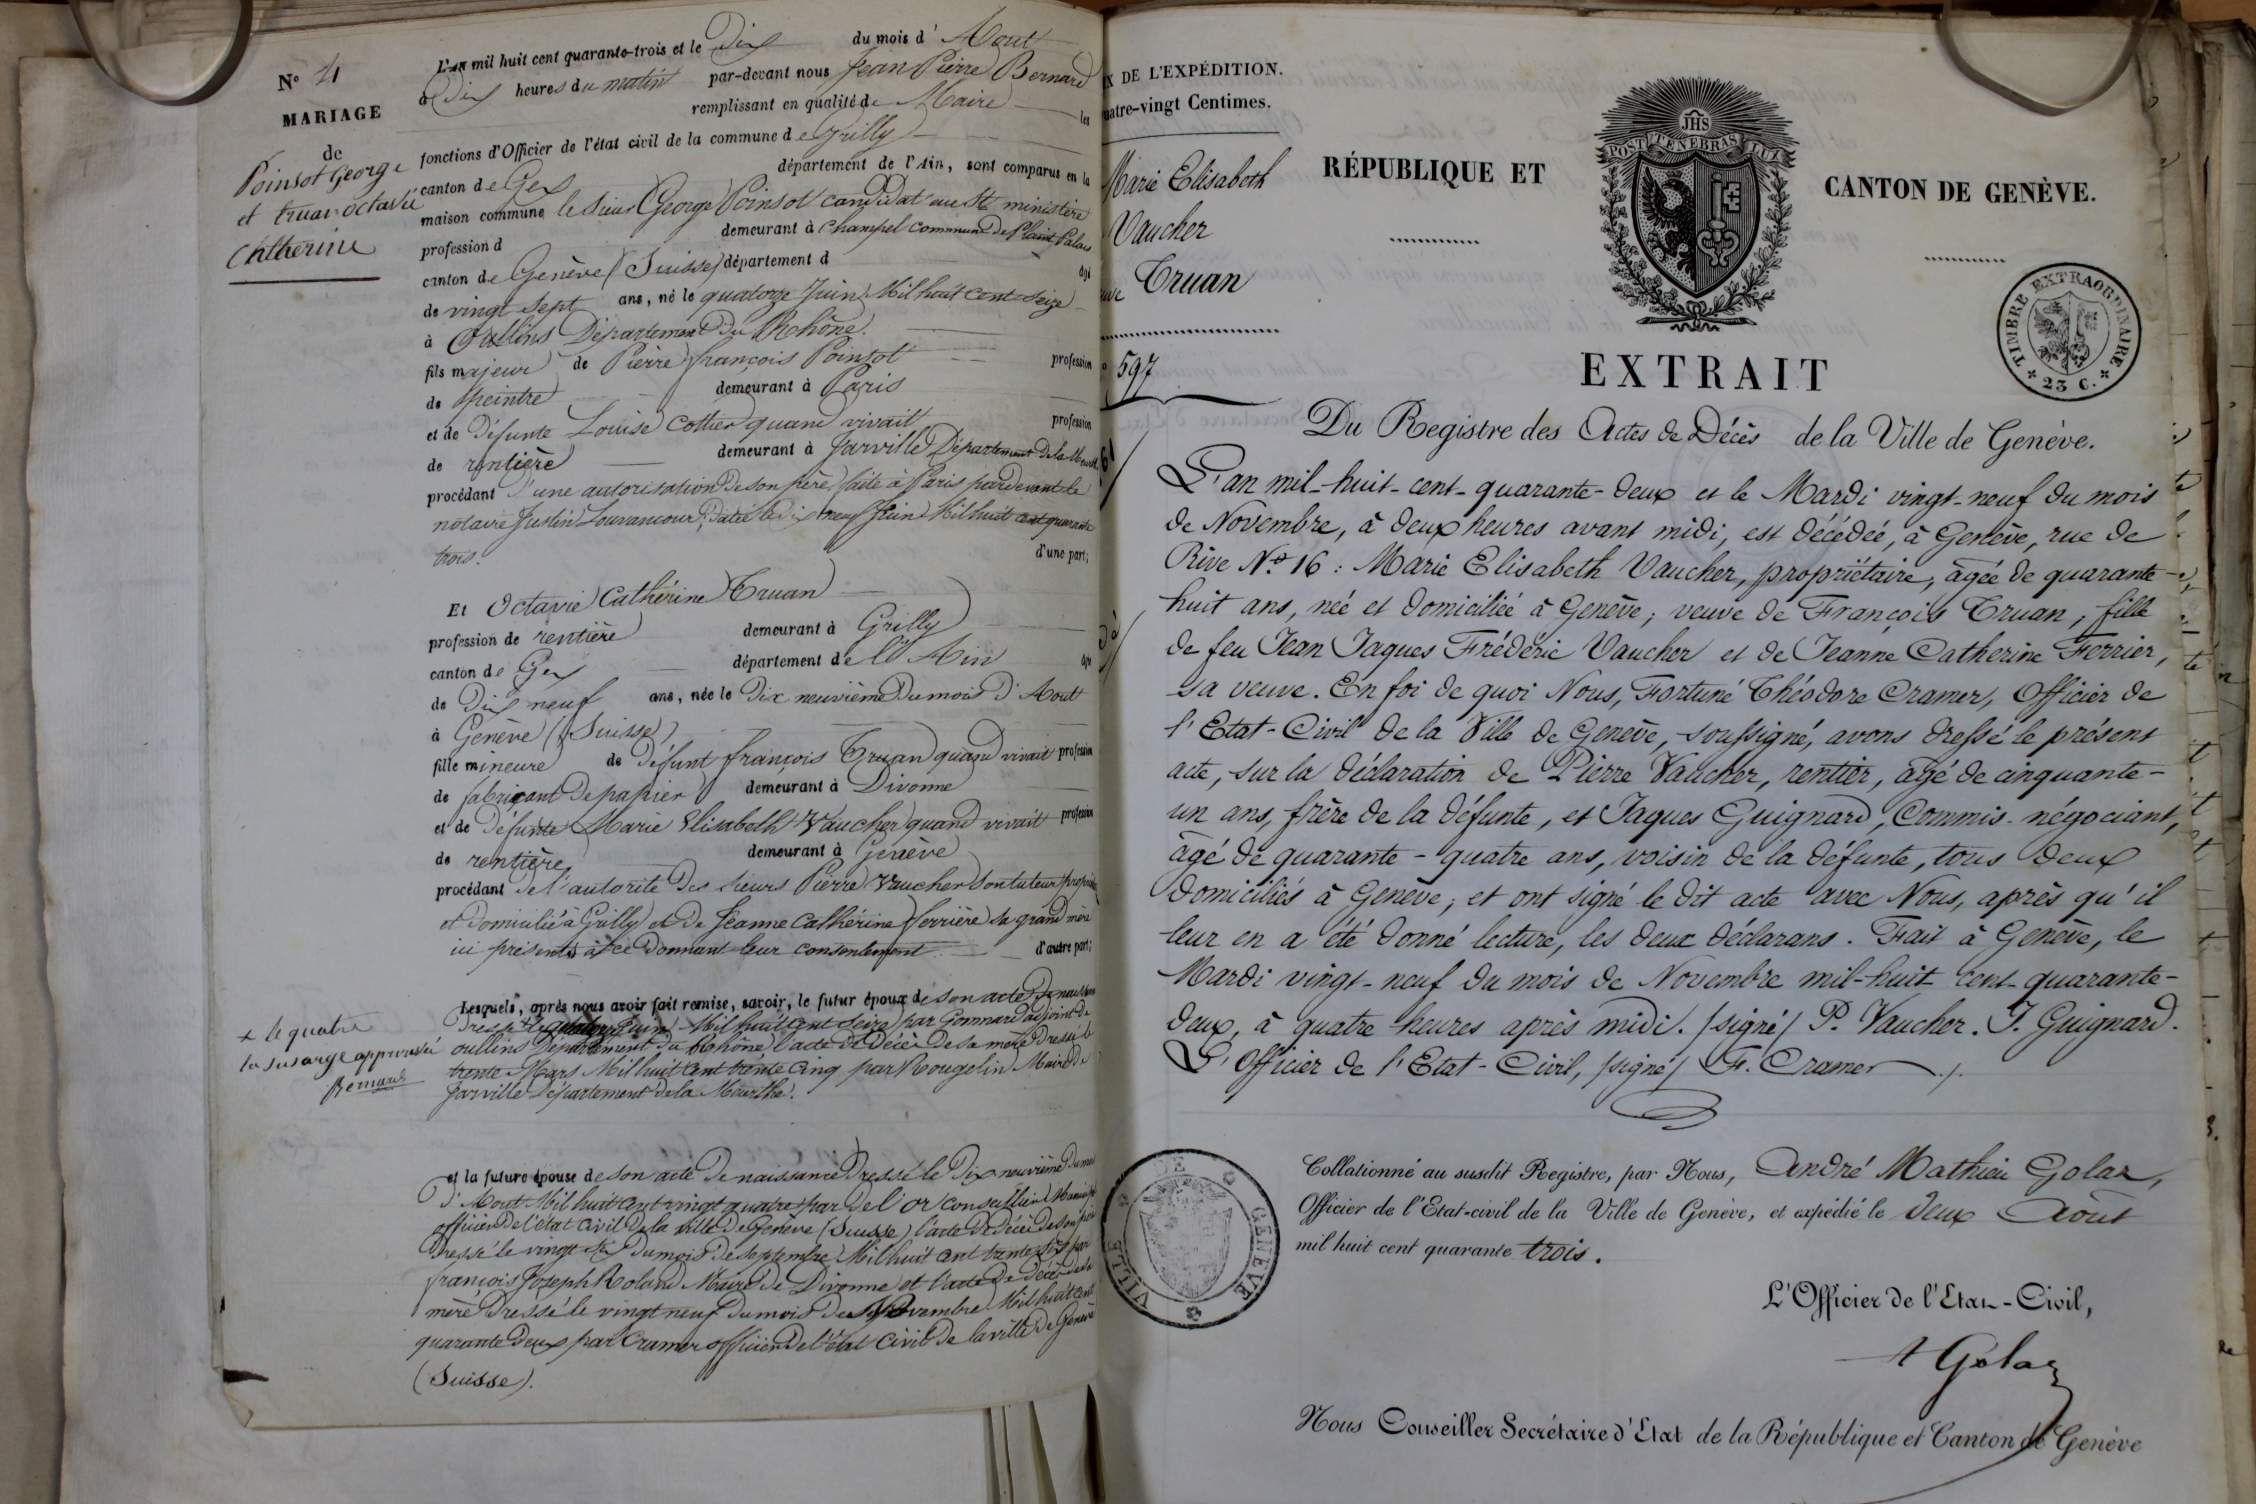 N° 4
MARIAGE
de
Poinsot George
et truan octavie
Catherine
L'an mil huit cent quarante-trois et le Dix du mois d'Aout
à Dix heures du matin par-devant nous Jean Pierre Bernard
remplissant en qualité de Maire les
fonctions d'Officier de l'état civil de la commune de Grilly
canton de Gex département de l'Ain, sont comparus en la
maison commune le sieur George Poinsot candidat au St ministère
profession d demeurant à Champel commune de Plainpalais
canton de Genève (Suisse) département d âgé
de vingt sept ans, né le quatorze Juin Mil huit cent seize
à Oullins Département du Rhône.
fils majeur de Pierre françois Poinsot profession
de peintre demeurant à Paris
et de Défunte Louise Cottier quand vivait profession
de rentière demeurant à Jarville Département de la Meurthe
procédant d'une autorisation de son père faite à Paris pardevant le
notaire Justin Louvancour, datée le dix neuf Juin Mil huit cent quarante
trois. d'une part;
Et Octavie Cathérine Truan
profession de rentière demeurant à Grilly
canton de Gex département de l'Ain âgée
de Dix neuf ans, née le Dix neuvième du mois d'Aout
à Genève (Suisse)
fille mineure de Défunt françois Truan quand vivait profession
de fabricant de papier demeurant à Divonne
et de Défunte Marie Elisabeth Vaucher quand vivait profession
de rentière demeurant à Genève
procédant de l'autorité des sieurs Pierre Vaucher son tuteur
et domicilié à Grilly et de Jeanne Cathérine ferrière sa grand mère
ici présents à ce donnant leur consentement d'autre part;
Lesquels, après nous avoir fait remise, savoir, le futur époux de son acte de naissance
+ le quatre
la susarge approuvée
Bernard
Dressé le Juin Mil huit cent seize par Gommard adjoint de
oullins Département du Rhône, l'acte de Décès de sa mère Dressé le
trente Mars Mil huit cent trente cinq par Rougelin Maire de
Jarville Département de la Meurthe.
et la future épouse de son acte de naissance Dressé le Dix neuvième du mois
d'Aout Mil huit cent vingt quatre par Del'or conseiller Municipal
officier de l'état civil de la ville de Genève (Suisse) l'acte de Décès de son père
Dressé le vingt du mois de septembre Mil huit cent trente six par
françois Joseph Roland Maire de Divonne et l'acte de Décès de la
mère Dressé le vingt neuf du mois de Novembre Mil huit cent
quarante deux par Cramer officier de l'état civil de la ville de Genève
(Suisse).
X DE L'EXPÉDITION.
uatre-vingt Centimes.
Marie Elisabeth
Vaucher
uve Truan
597
RÉPUBLIQUE ET
JHS
POST TENEBRAS LUX
CANTON DE GENÈVE.
TIMBRE EXTRAORDINAIRE
23 C.
EXTRAIT
Du Registre des Actes de Décès de la Ville de Genève.
L'an mil-huit-cent-quarante-deux et le Mardi vingt-neuf du mois
de Novembre, à deux heures avant midi, est décédée, à Genève, rue de
Rive N.º 16 : Marie Elisabeth Vaucher, propriétaire, âgée de quarante-
huit ans, née et domiciliée à Genève; veuve de François Truan, fille
de feu Jean Jaques Frédéric Vaucher et de Jeanne Catherine Ferrier,
sa veuve. En foi de quoi Nous, Fortuné Théodore Cramer, Officier de
l'Etat-Civil de la Ville de Genève, soussigné, avons dressé le présent
acte, sur la déclaration de Pierre Vaucher, rentier, âgé de cinquante-
un ans, frère de la défunte, et Jaques Guignard, Commis-négociant,
âgé de quarante-quatre ans, voisin de la défunte, tous deux
domiciliés à Genève; et ont signé le dit acte avec Nous, après qu'il
leur en a été donné lecture, les deux déclarans. Fait à Genève, le
Mardi vingt-neuf du mois de Novembre mil-huit-cent-quarante-
deux, à quatre heures après midi. /signé/ P. Vaucher. J. Guignard.
L'Officier de l'Etat-Civil, /signé/ F. Cramer
Collationné au susdit Registre, par Nous, André Mathieu Golaz,
Officier de l'Etat-civil de la Ville de Genève, et expédié le deux Août
mil huit cent quarante trois.
VILLE DE GENEVE
L'Officier de l'Etat-Civil,
A Golaz
Nous Conseiller Secrétaire d'Etat de la République et Canton de Genève